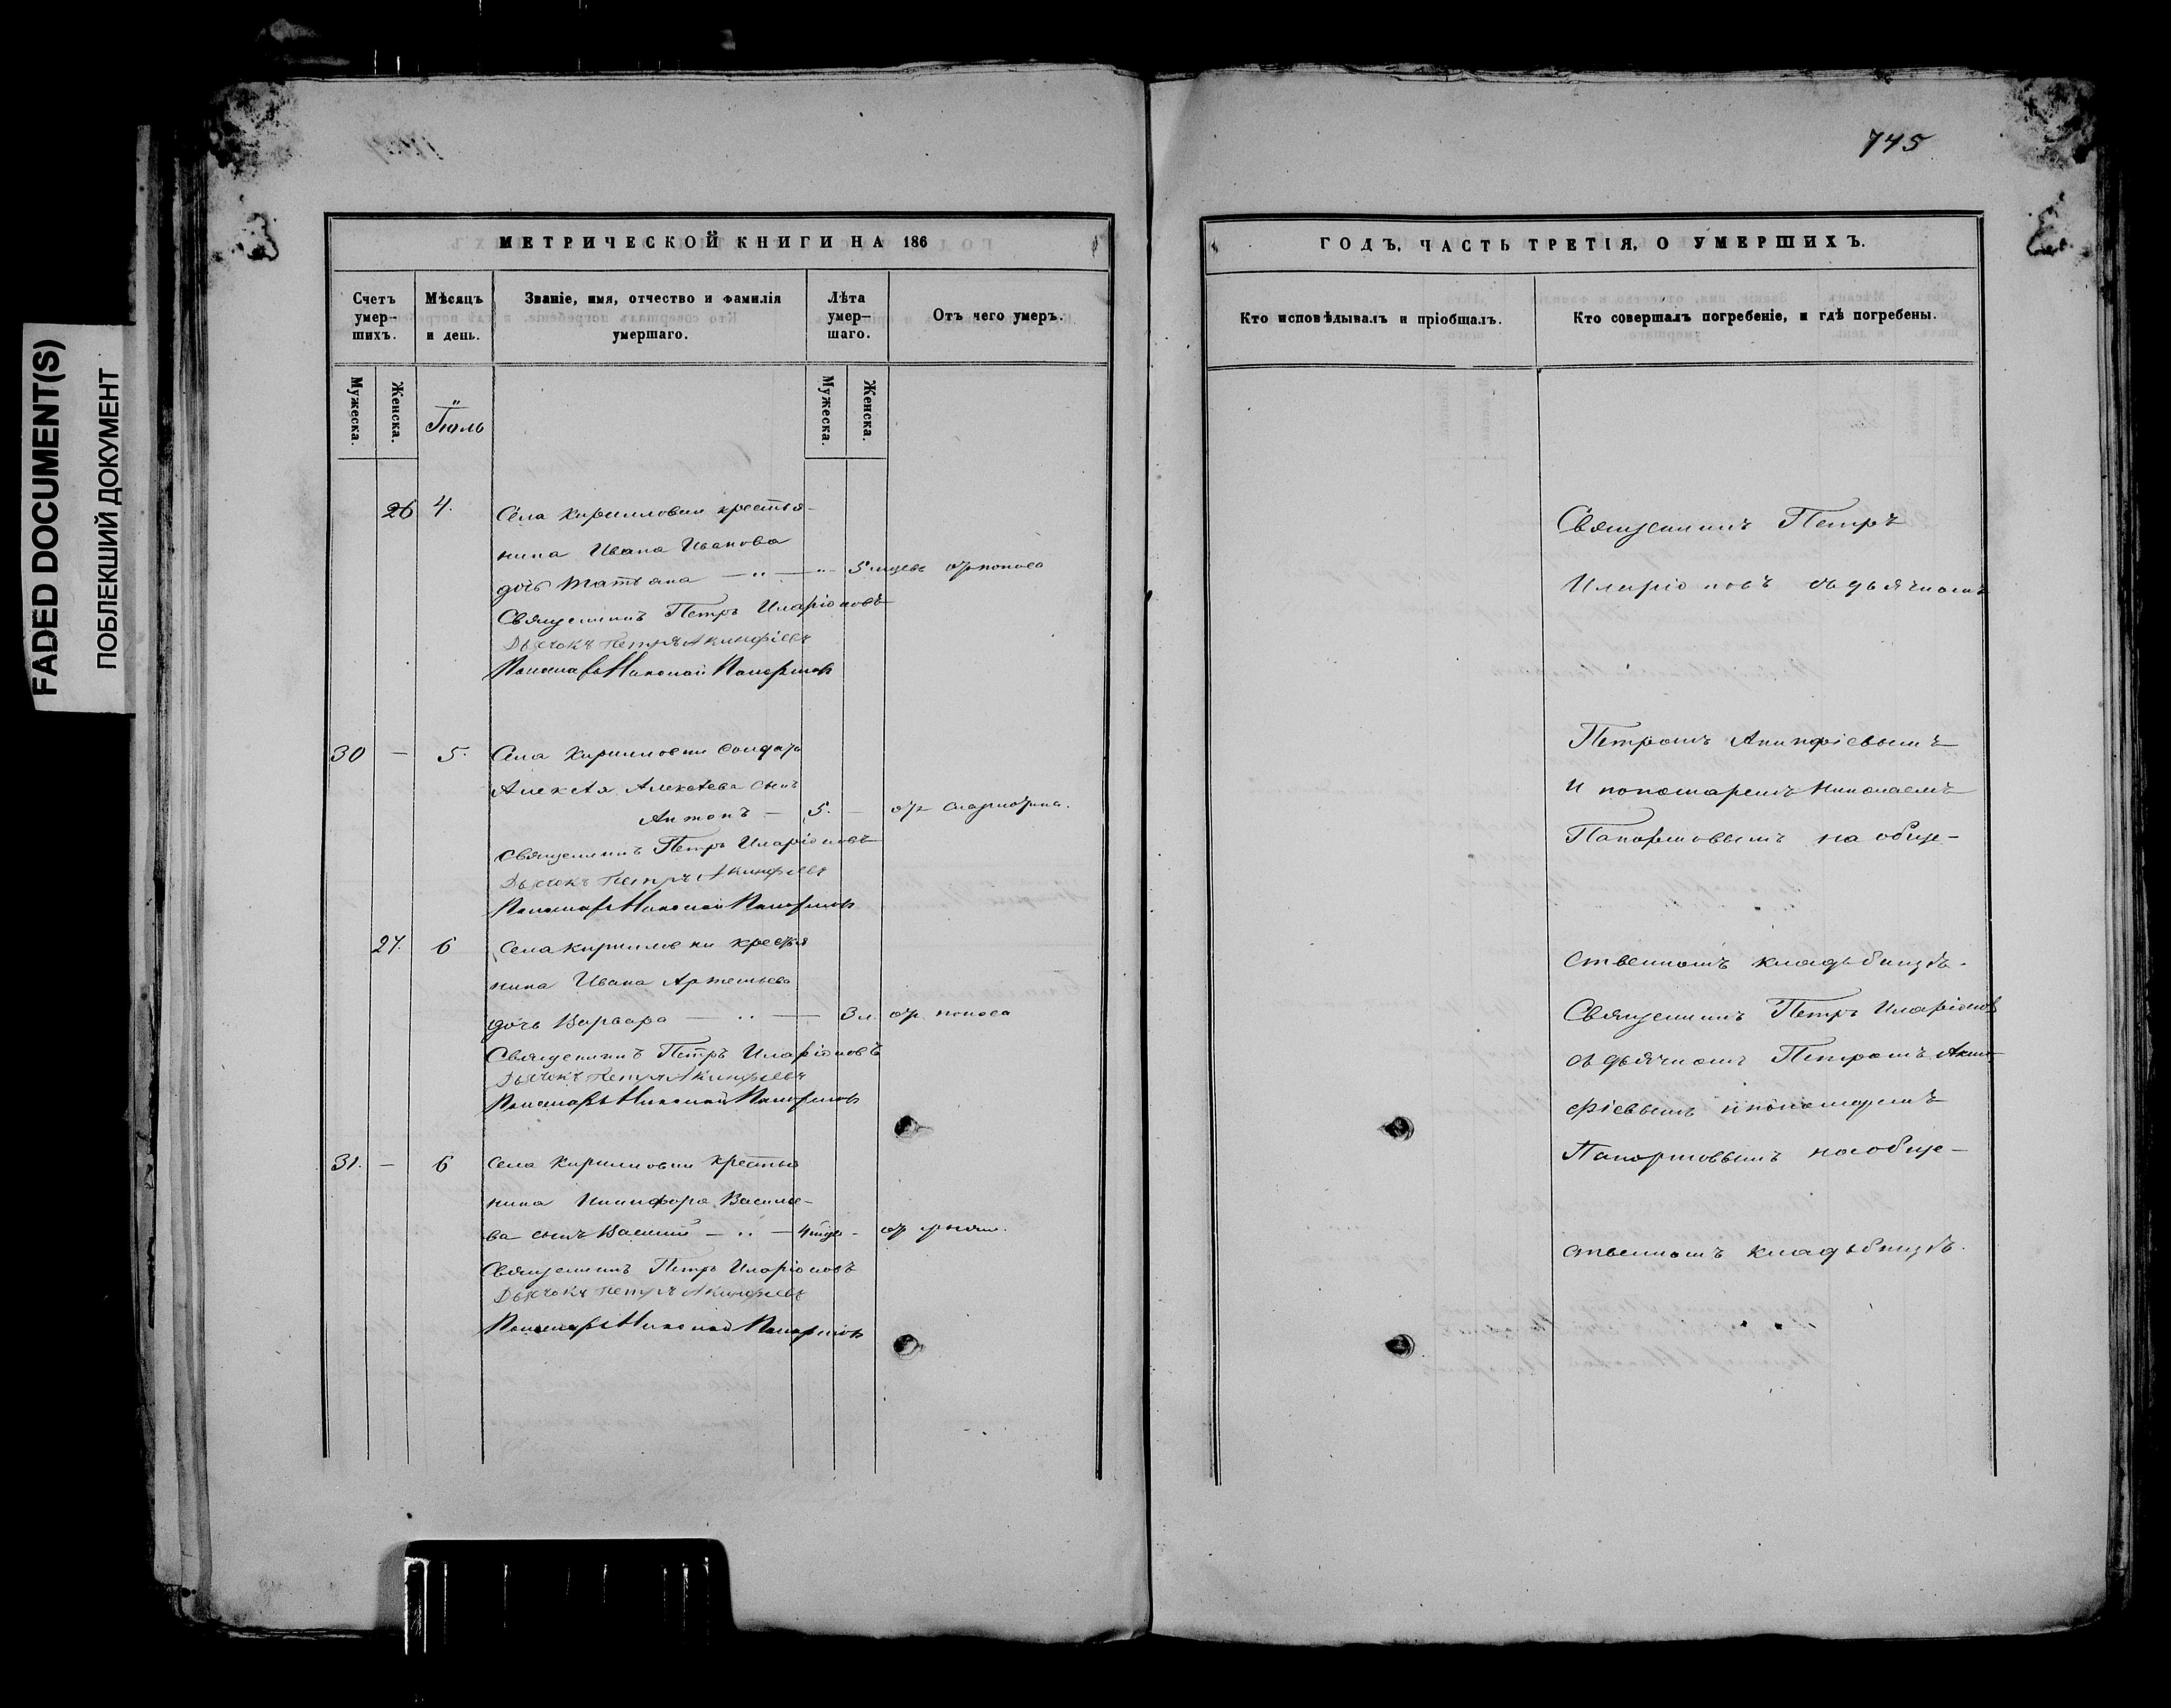 FADED DOCUMENT(S)
ПОБЛЕКШИЙ ДОКУМЕНТ
745
МЕТРИЧЕСКОЙ КНИГИ НА 186
Счетъ умер-шихъ.
Мѣсяцъ и день.
Званіе, имя, отчество и фамилія умершаго.
Лѣта умер-шаго.
Отъ чего умеръ.
Мужеска.
Женска.
Мужеска.
Женска.
Іюль
26 4. Села Кирилловки крестья-
нина Ивана Иванова
дочь Татьяна — „ — „ 5 мцевъ отъ поноса
Священникъ Петръ Иларіоновъ
Дьячокъ Петръ Акинфіевъ
Пономарь Николай
30 — 5. Села Кирилловки солдата
Алексѣя Алексѣева сынъ
Антонъ — 5. —
Священникъ Петръ Иларіоновъ
Дьячокъ Петръ Акинфіевъ
Пономарь Николай
27. 6 Села Кирилловки крестья
нина Ивана Артемьева
дочь Варвара — „ — 3 л. отъ поноса
Священникъ Петръ Иларіоновъ
Дьячокъ Петръ Акинфіевъ
Пономарь Николай
31. — 6 Села Кирилловки крестья
нина Никифора Василье-
ва сынъ Василий — „ — 4 -
Священникъ Петръ Иларіоновъ
Дьячокъ Петръ Акинфіевъ
Пономарь Николай
ГОДЪ, ЧАСТЬ ТРЕТІЯ, О УМЕРШИХЪ.
Кто исповѣдывалъ и пріобщалъ.
Кто совершалъ погребеніе, и гдѣ погребены.
Священникъ Петръ
Иларіоновъ съ дьячкомъ
Петромъ Акинфіевымъ
и пономаремъ Николаемъ
на обще-
ственномъ кладьбищѣ.
Священникъ Петръ Иларіоновъ
съ дьячкомъ Петромъ Акин-
фіевымъ и пономаремъ
на обще-
ственномъ кладьбищѣ.